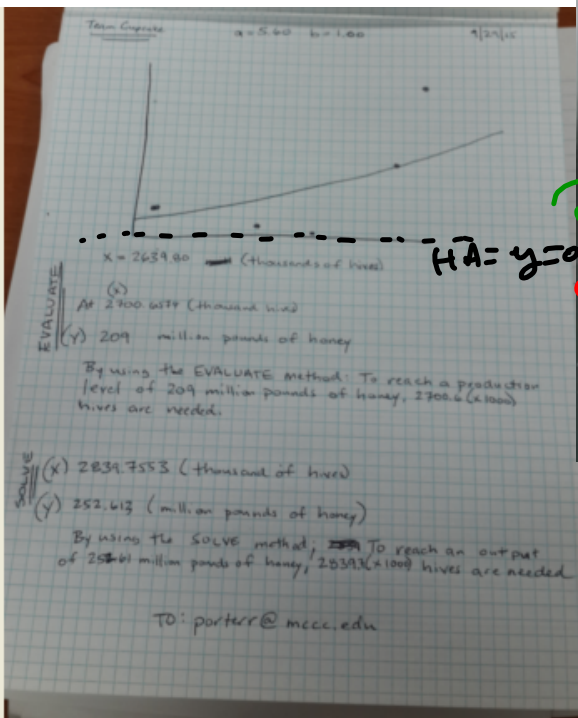 Team Cupcake a = 5.60 b = 1.00 9/29/15
HA= y=0
X = 2639.80 (thousands of hives)
EVALUATE
(X)
At 2700.6574 (thousand hives)
(Y) 209 million pounds of honey
By using the EVALUATE method: To reach a production
level of 209 million pounds of honey, 2700.6 (x1000)
hives are needed.
SOLVE
(X) 2839.7553 (thousand of hives)
(Y) 252.613 (million pounds of honey)
By using the SOLVE method; To reach an output
of 252.61 million pounds of honey, (x1000) hives are needed
TO: porterr@mccc.edu